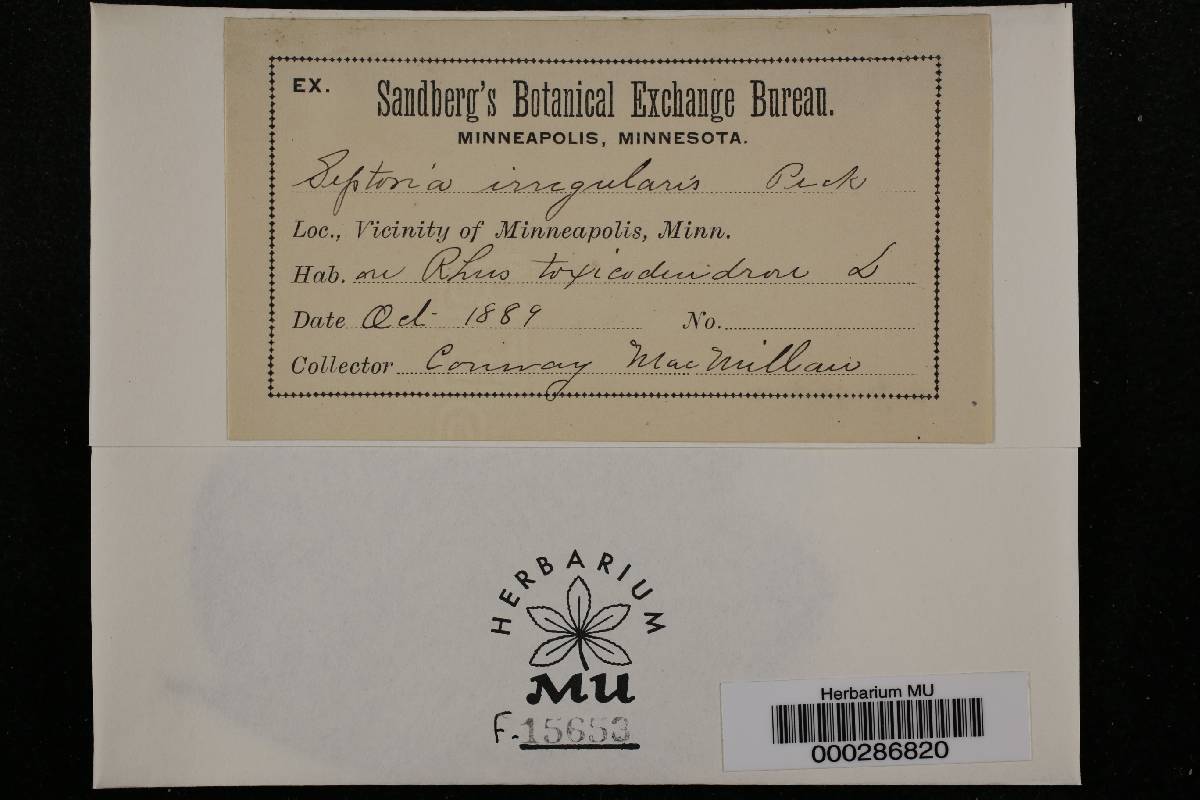 EX. Sandberg's Botanical Exchange Bureau.
MINNEAPOLIS, MINNESOTA.
Septoria irregularis Peck
Loc., Vicinity of Minneapolis, Minn.
Hab. on Rhus toxicodendron L
Date Oct- 1889 No.
Collector Conway MacMillan
HERBARIUM
MU
F. 15653
Herbarium MU
000286820